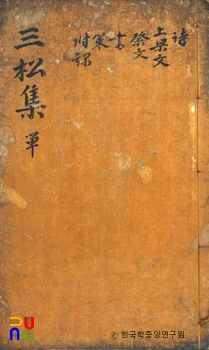 三松集 單
詩
上梁文
祭文
書
策
附錄
ⓒ 한국학중앙연구원